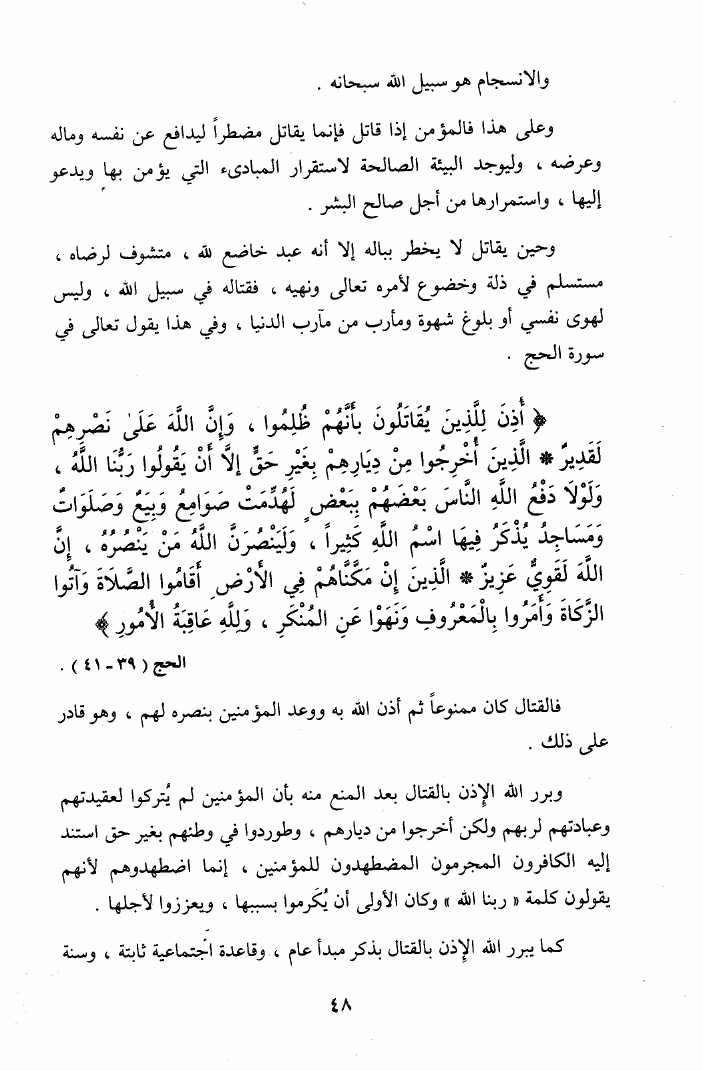 والانسجام هو سبيل الله سبحانه .
وعلى هذا فالمؤمن إذا قاتل فإنما يقاتل مضطراً ليدافع عن نفسه وماله
وعرضه ، وليوجد البيئة الصالحة لاستقرار المبادىء التي يؤمن بها ويدعو
إليها ، واستمرارها من أجل صالح البشر .
وحين يقاتل لا يخطر بباله إلا أنه عبد خاضع لله ، متشوف لرضاه ،
مستسلم في ذلة وخضوع لأمره تعالى ونهيه ، فقتاله في سبيل الله ، وليس
لهوى نفسي أو بلوغ شهوة ومأرب من مآرب الدنيا ، وفي هذا يقول تعالى في
سورة الحج .
﴿ أُذِنَ لِلَّذِينَ يُقَاتَلُونَ بِأَنَّهُمْ ظُلِمُوا ، وَإِنَّ اللَّهَ عَلَىٰ نَصْرِهِمْ
لَقَدِيرٌ * الَّذِينَ أُخْرِجُوا مِنْ دِيَارِهِمْ بِغَيْرِ حَقٍّ إلَّا أَنْ يَقُولُوا رَبُّنَا اللَّهُ ،
وَلَوْلَا دَفْعُ اللَّهِ النَّاسَ بَعْضَهُمْ بِبَعْضٍ لَهُدِّمَتْ صَوَامِعُ وَبِيَعٌ وَصَلَوَاتٌ
وَمَسَاجِدُ يُذْكَرُ فِيهَا اسْمُ اللَّهِ كَثِيراً ، وَلَيَنْصُرَنَّ اللَّهُ مَنْ يَنْصُرُهُ ، إِنَّ
اللَّهَ لَقَوِيٌّ عَزِيزٌ * الَّذِينَ إِنْ مَكَّنَّاهُمْ فِي الْأَرْضِ أَقَامُوا الصَّلَاةَ وَآتَوُا
الزَّكَاةَ وَأَمَرُوا بِالْمَعْرُوفِ وَنَهَوْا عَنِ المُنْكَرِ ، وَلِلَّهِ عَاقِبَةُ الْأُمُورِ ﴾
الحج ( ٣٩ - ٤١ ) .
فالقتال كان ممنوعاً ثم أذن الله به ووعد المؤمنين بنصره لهم ، وهو قادر
على ذلك .
ويبرر الله الإذن بالقتال بعد المنع منه بأن المؤمنين لم يُتركوا لعقيدتهم
وعبادتهم لربهم ولكن أخرجوا من ديارهم ، وطوردوا في وطنهم بغير حق استند
إليه الكافرون المجرمون المضطهدون للمؤمنين ، إنما اضطهدوهم لأنهم
يقولون كلمة « ربنا الله » وكان الأولى أن يُكَرموا بسببها ، ويعززوا لأجلها .
كما يبرر الله الإذن بالقتال بذكر مبدأ عام ، وقاعدة اجتماعية ثابتة ، وسنة
٤٨